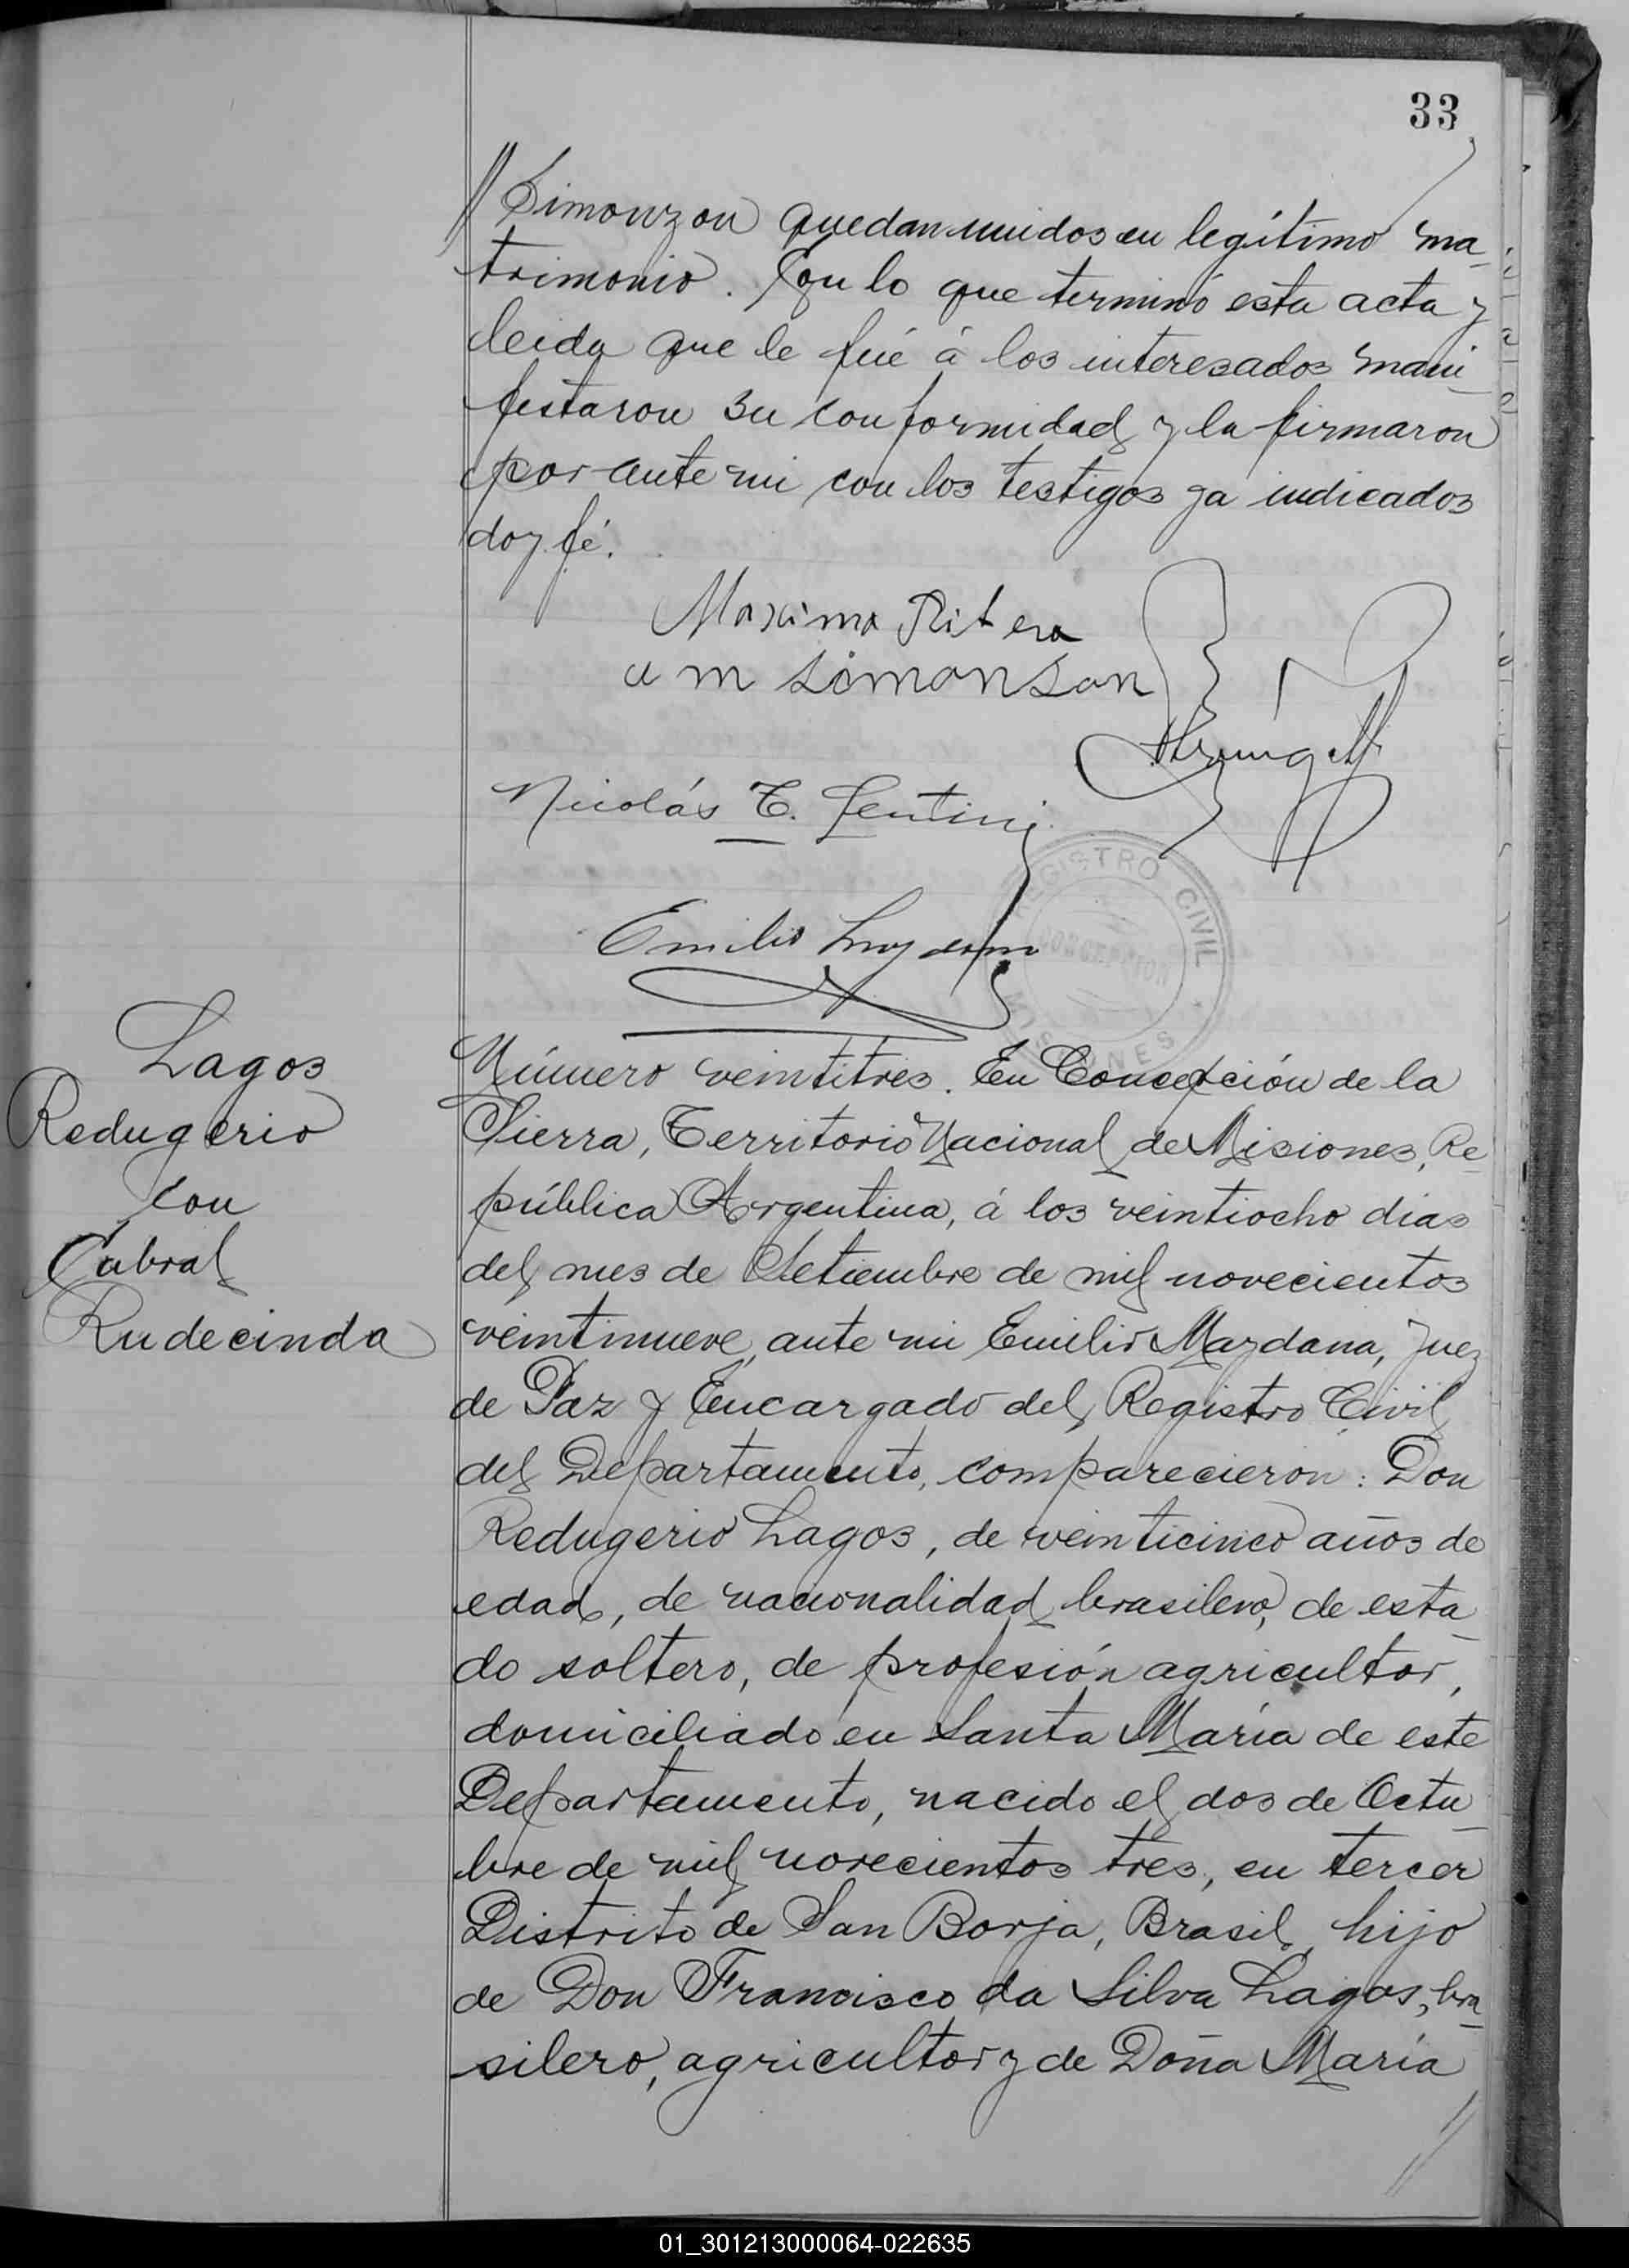 33
// Simonzon quedan unidos en legítimo ma-
trimonio. Con lo que terminó esta acta y
leida que le fué á los interesados mani-
festaron su conformidad y la firmaron
por ante mi con los testigos ya indicados
doy fé.
Maximo Ritera
a m Simonson
Nicolás C. Gentini
REGISTRO CIVIL
CONCEPCION
MISIONES
Emilio
Lagos
Redugerio
con
Cabral
Rudecinda
Número veintitres. En Concepción de la
Sierra, Territorio Nacional de Misiones, Re-
pública Argentina, á los veintiocho dias
del mes de Setiembre de mil novecientos
veintinueve, ante mi Emilio Maydana, Juez
de Paz y Encargado del Registro Civil
del Departamento, comparecieron: Don
Redugerio Lagos, de veinticinco años de
edad, de nacionalidad brasilero, de esta-
do soltero, de profesión agricultor,
domiciliado en Santa María de este
Departamento, nacido el dos de Octu-
bre de mil novecientos tres, en tercer
Distrito de San Borja, Brasil, hijo
de Don Francisco da Silva Lagos, bra-
silero, agricultor y de Doña María
//
01_301213000064-022635